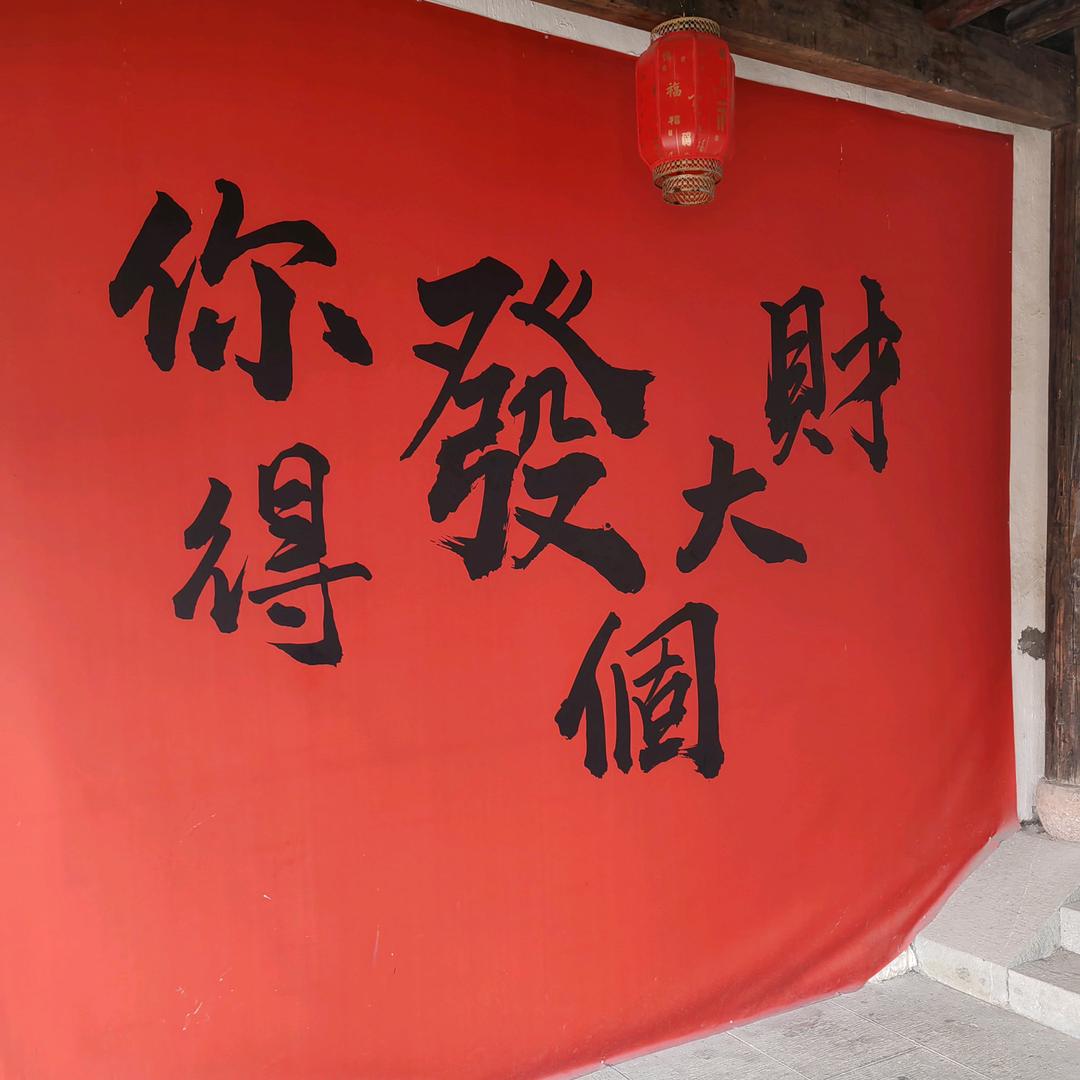 你得發個大財
福
福